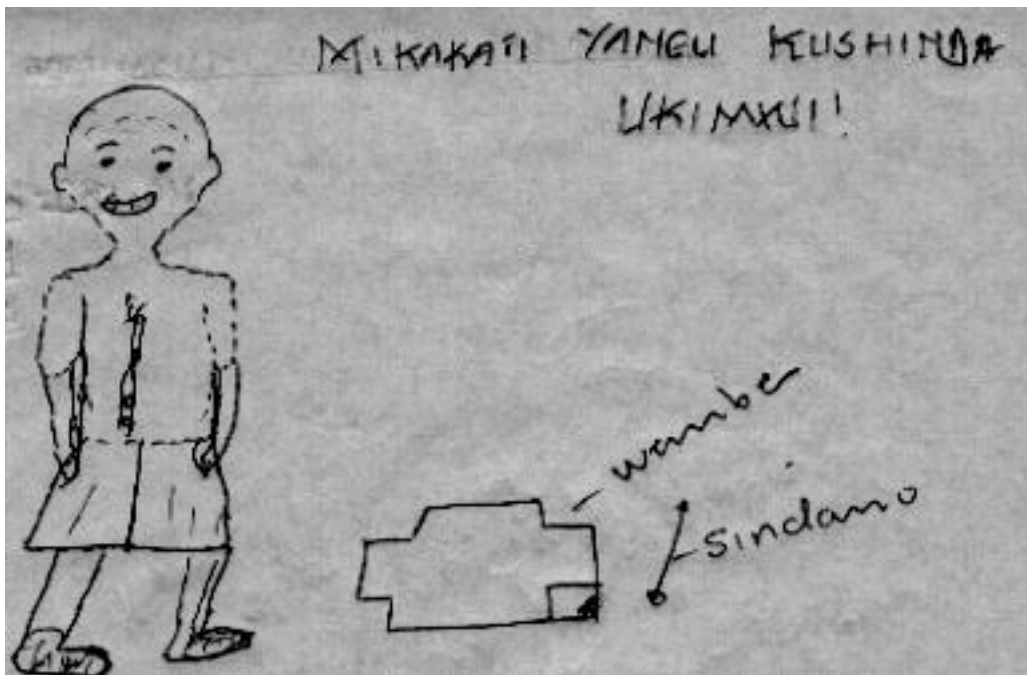 MIKAKATI YANGU KUSHINDA
UKIMWI!
wembe
sindano